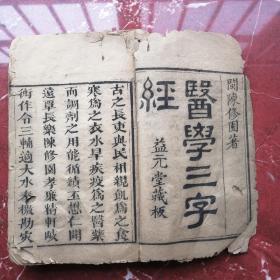 閩陳修園著
醫學三字
經
益元堂藏板
古之長吏與民相親飢為之食
寒為之衣水旱疾疫為之醫藥
而調劑之用能循績丕懋仁聞
遠覃長樂陳修園孝廉精軒岐
術作令三輔適大水奉檄勘災